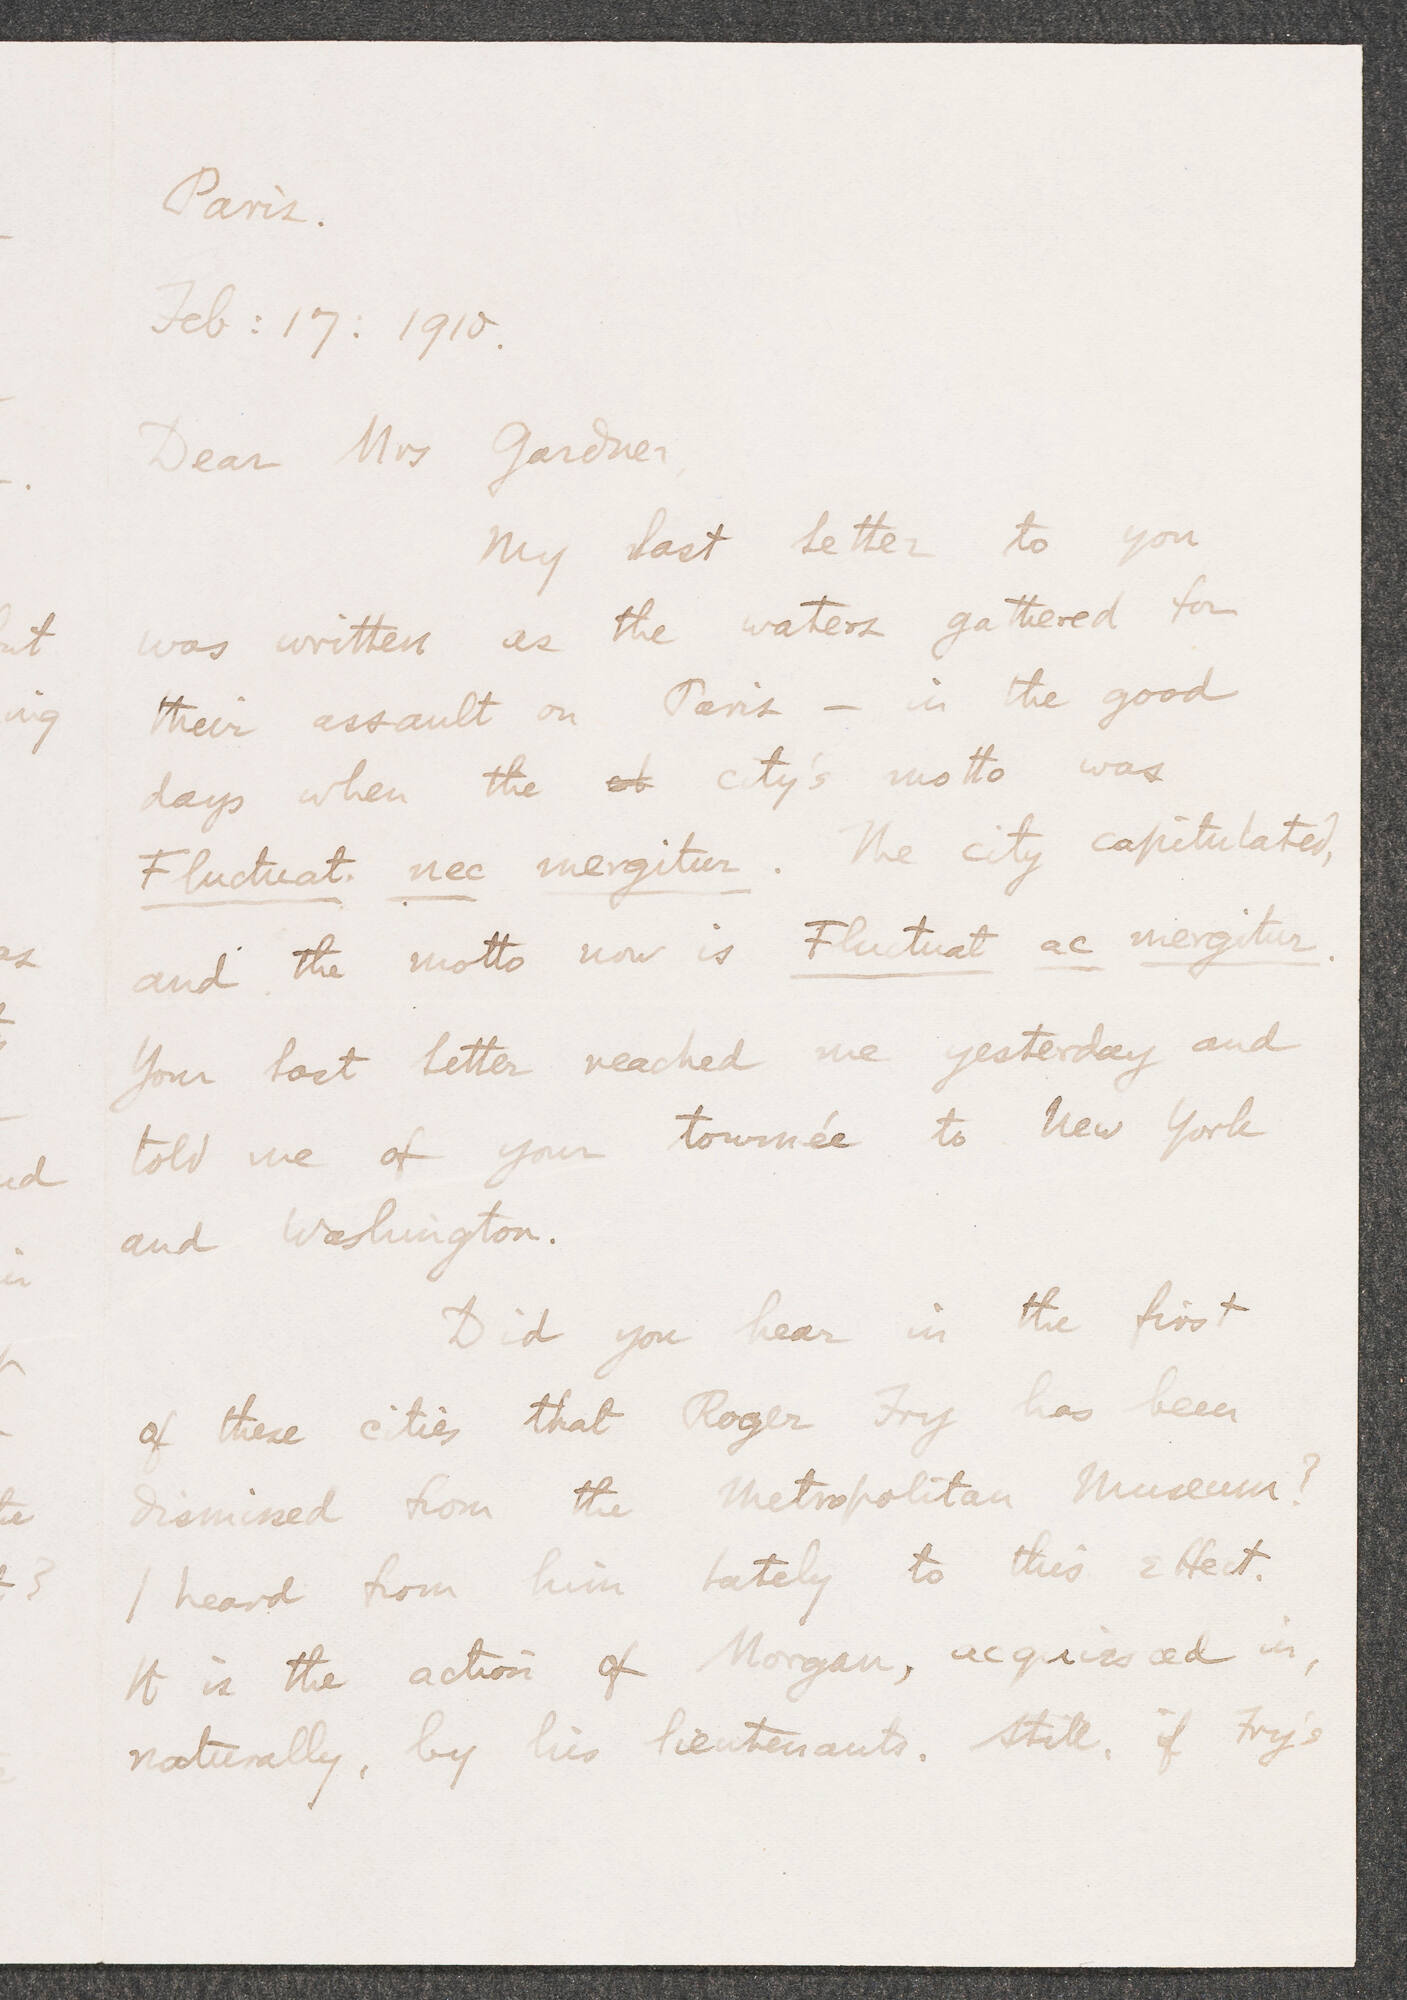 Paris.
Feb: 17: 1910.
Dear Mrs Gardner,
My last letter to you
was written as the waters gathered for
their assault on Paris – in the good
days when the city's motto was
Fluctuat nec mergitur. The city capitulated,
and the motto now is Fluctuat ac mergitur.
Your last letter reached me yesterday and
told me of your tournée to New York
and Washington.
Did you hear in the first
of these cities that Roger Fry has been
dismissed from the Metropolitan Museum?
I heard from him lately to this effect.
It is the action of Morgan, acquiesced in,
naturally, by his lieutenants. Still, if Fry's